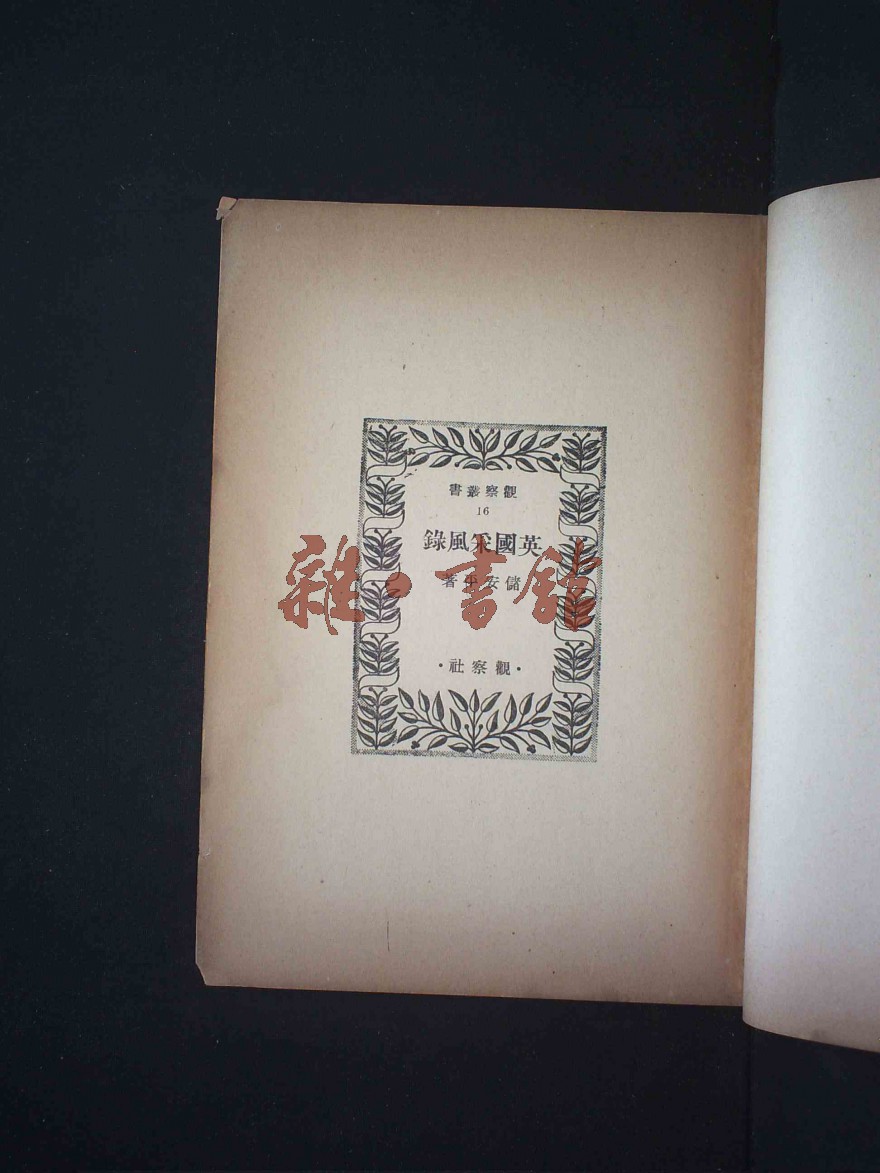 觀察叢書
16
英國采風錄
儲安平著
·觀察社·
雜·書館